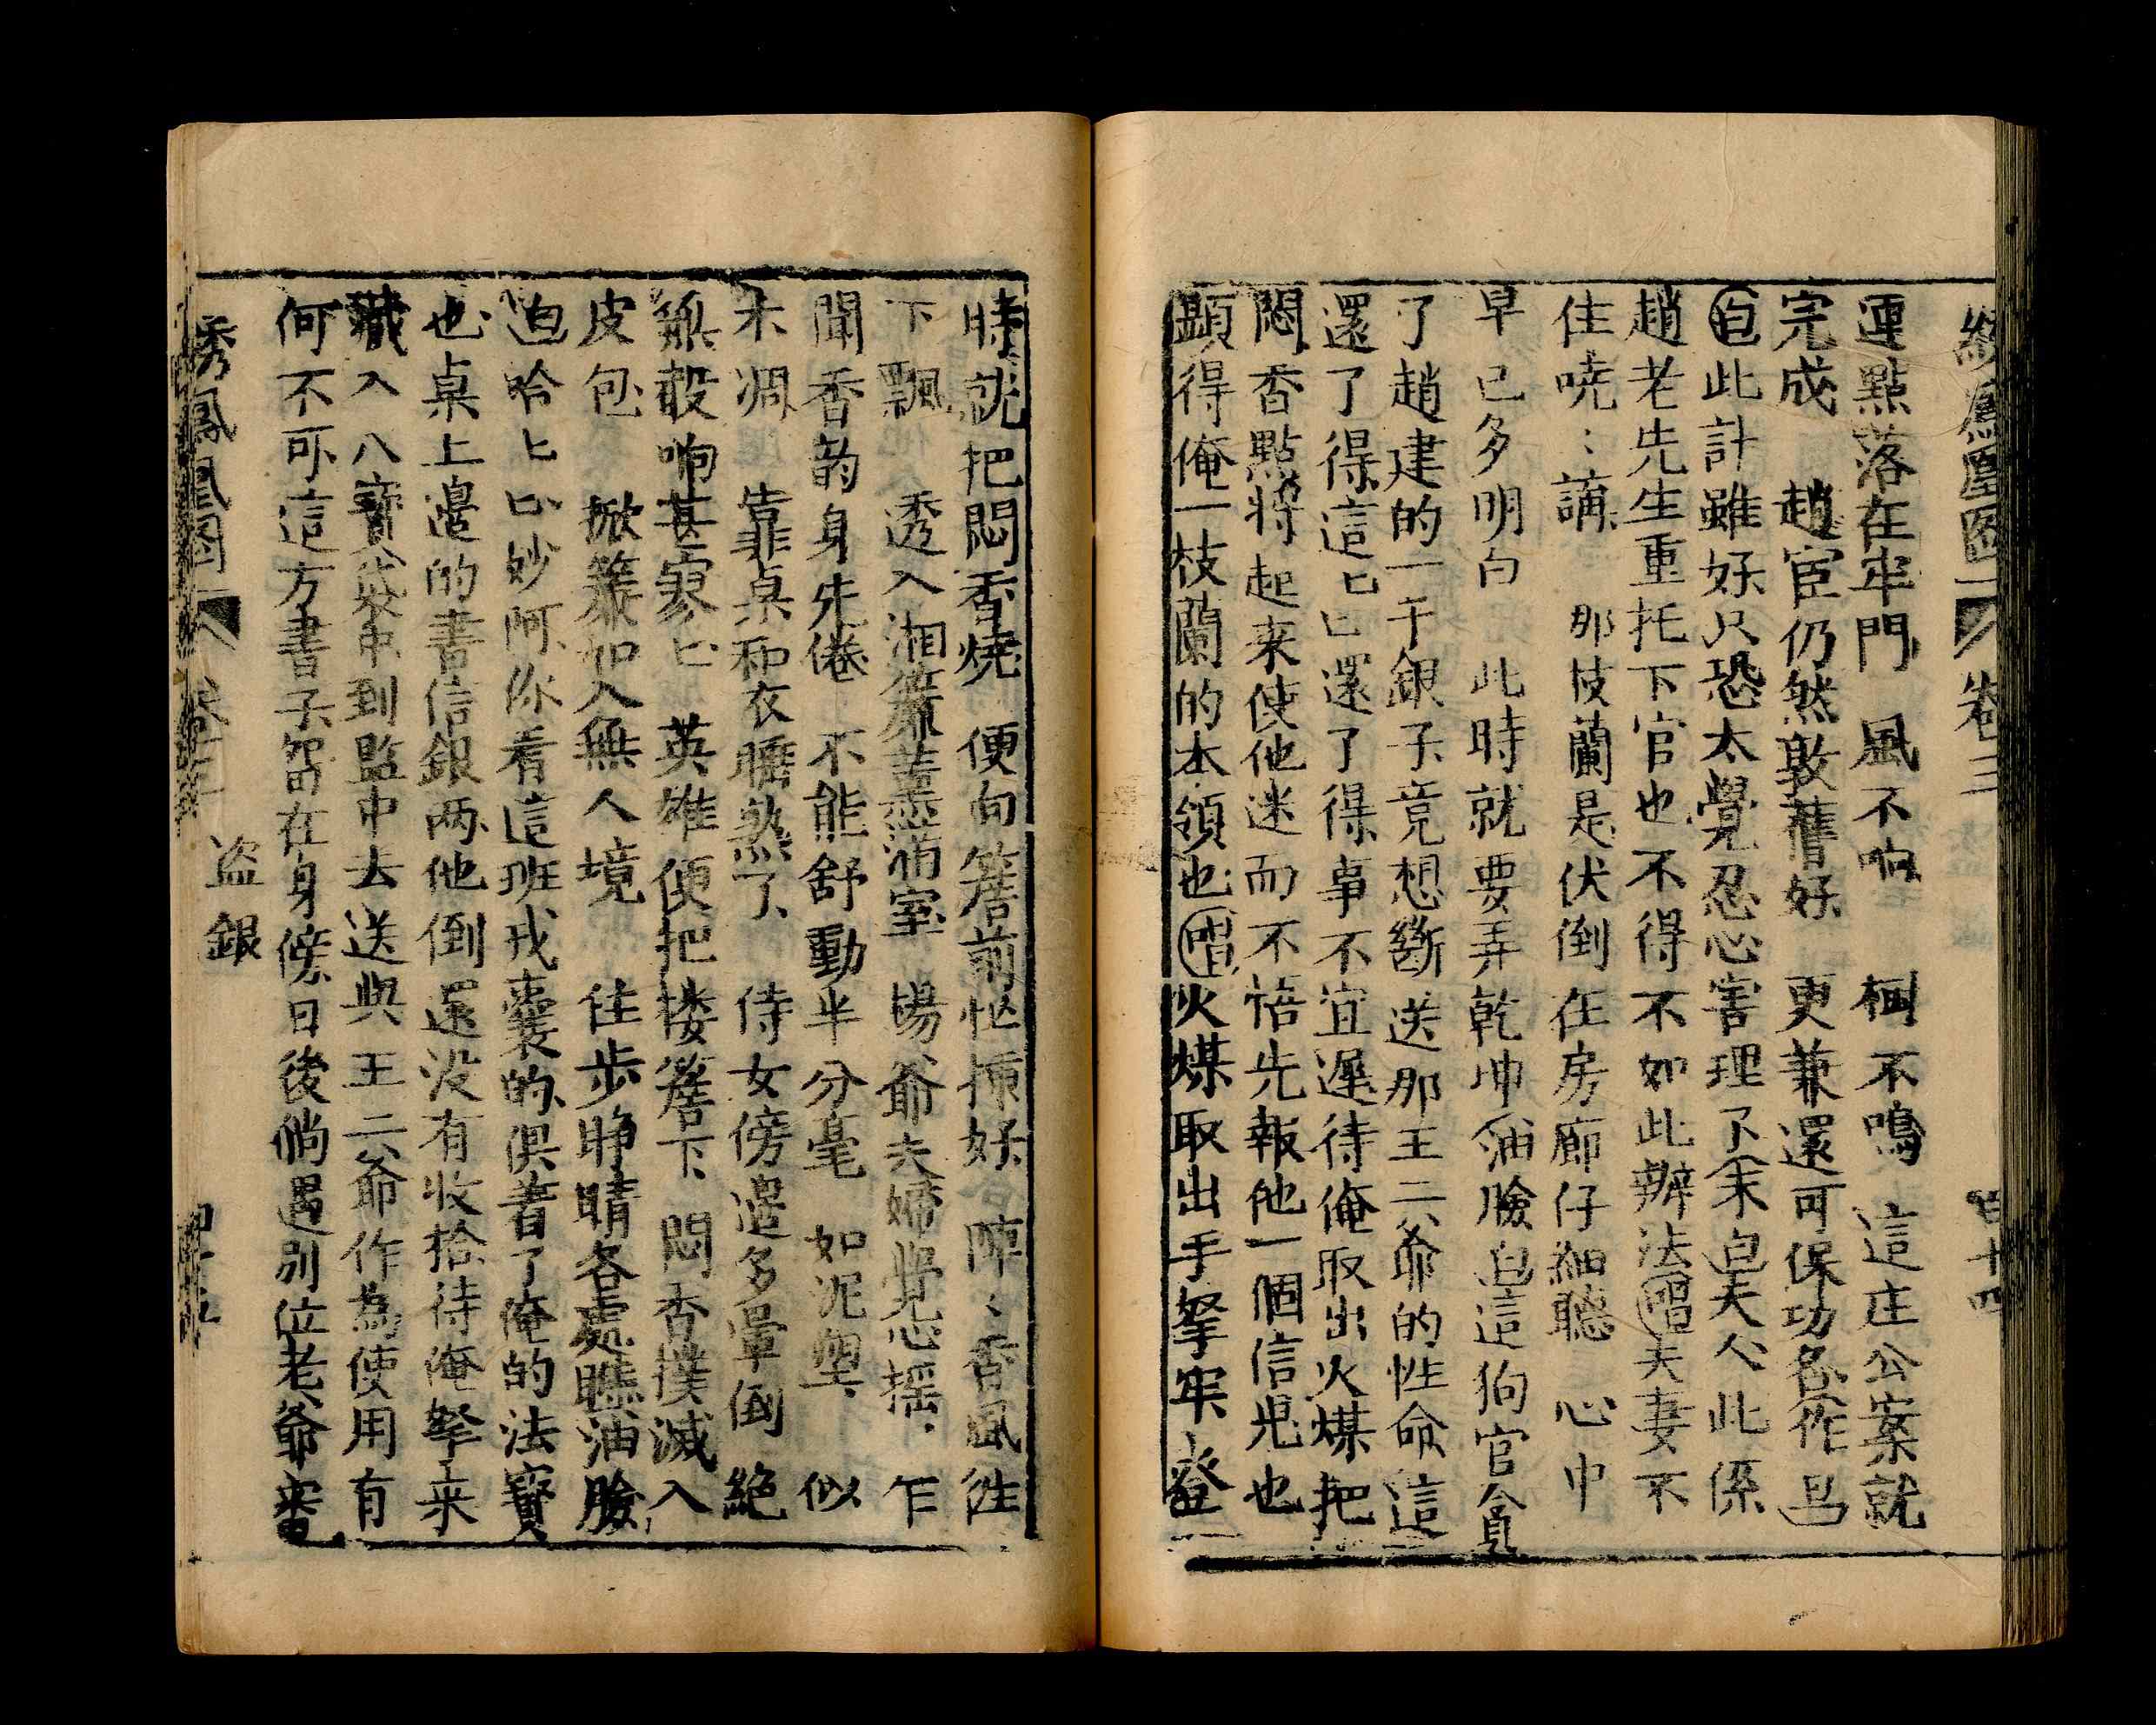 綉鳳凰圖 卷三 四十四
運點落在牢門 風不响 柵不鳴 這庄公案就
完成 趙宦仍然敦舊好 更兼還可保功名 作丑
白此計雖好只恐太覺忍心害理了 末白夫人此係
趙老先生重托下官也不得不如此辦法唱夫妻不
住哓〻講 那枝蘭是伏倒在房廊仔細聽 心中
早已多明白 此時就要弄乾坤 油臉白這狗官貪
了趙建的一千銀子竟想斷送那王二爺的性命這
還了得這匕匕還了得事不宜遲待俺取出火煤把
悶香點將起来使他迷而不悟先報他一個信児也
顯得俺一枝蘭的本領也唱火煤取出手拏牢 登
時就把悶香燒 便向簷前忙挿好 陣〻香風往
下飄 透入湘簾薰滿室 楊爺夫婦覺心搖 乍
聞香韵身先倦 不能舒動半分毫 如泥塑 似
木凋 靠桌和衣睡熟了 侍女傍邉多暈倒 絕
無殺响甚寥匕 英雄便把楼簷下 悶香撲滅入
皮包 掀簾如入無人境 住步睁睛各處瞧 油臉
白哈匕匕妙阿你看這班戎囊的俱着了俺的法寳
也桌上邉的書信銀两他倒還没有收拾待俺拏来
藏入八寳袋中到監中去送與王二爺作為使用有
何不可這方書子留在身傍日後倘遇别位老爺審
綉鳳凰圖 卷三 盗銀 四十五